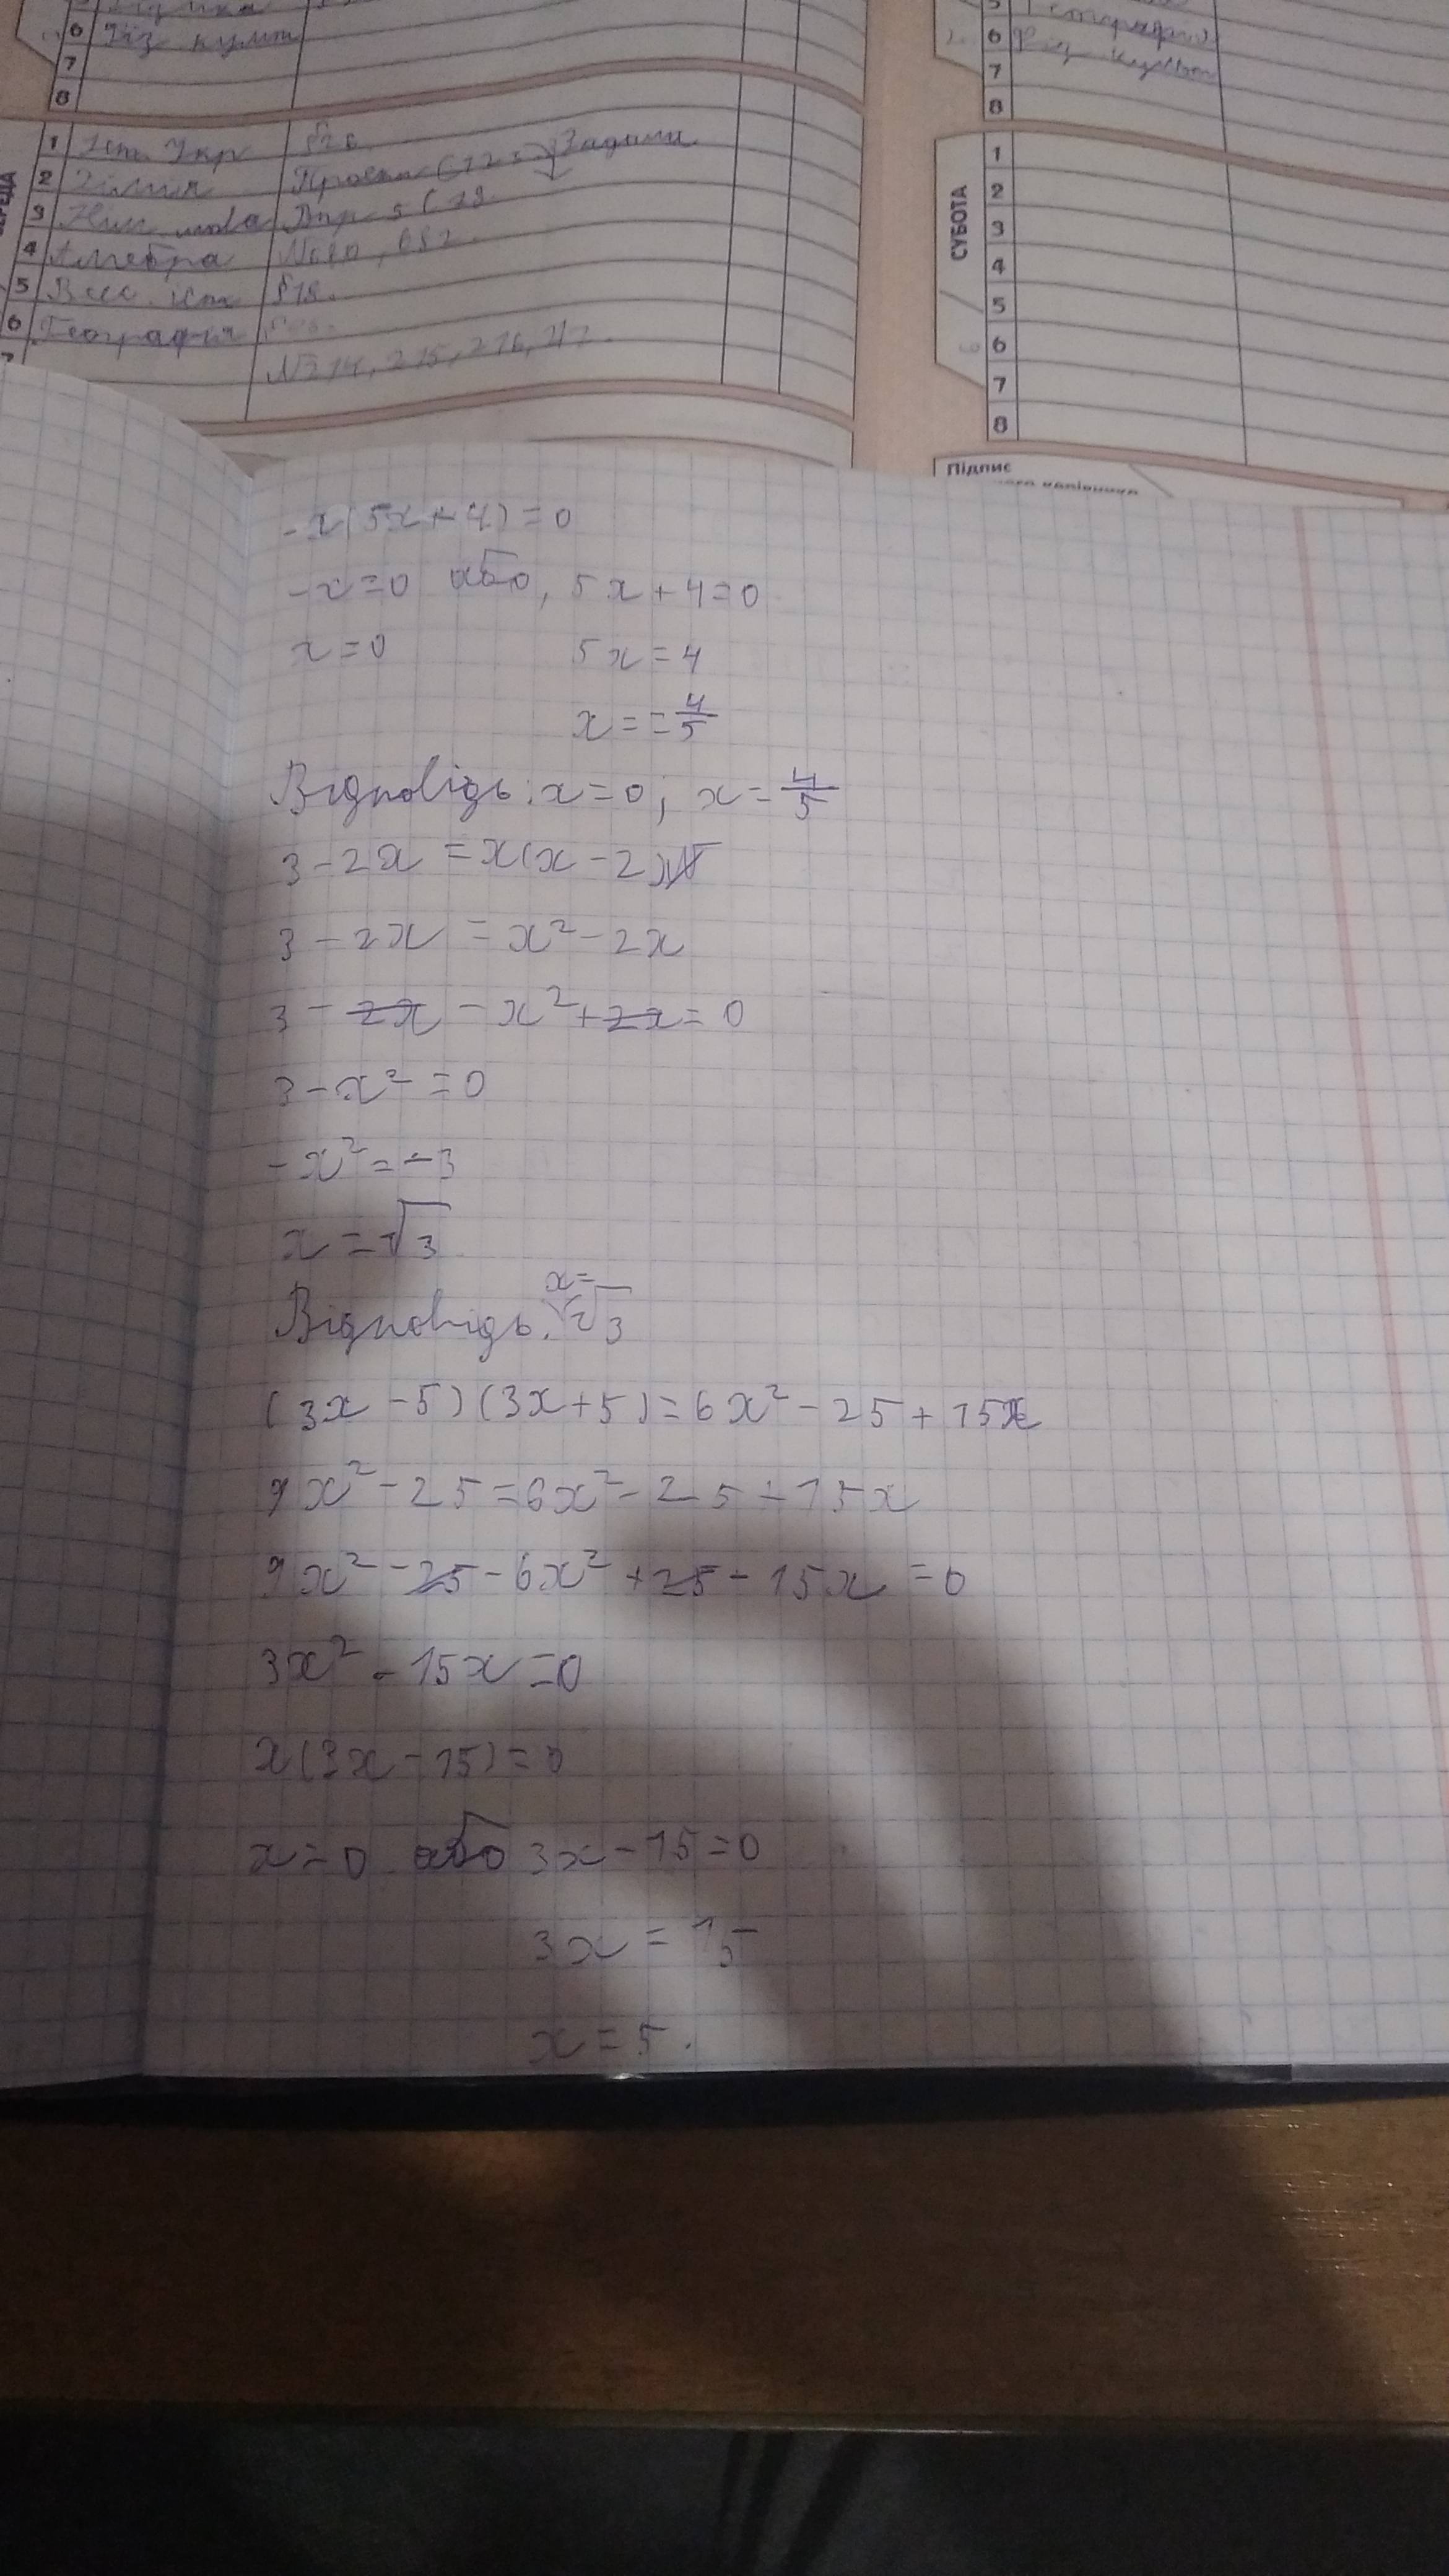 6 Фіз культ
7
8
1 Іст. Укр §26.
2 Хімія
3 Нім. мова Впр 5 С
4 Алгебра №680, 682.
5 Всес. іст §18.
6 Географія
№214, 215, 216, 217.
СЕРЕДА
5 Географія
6 Фіз культ
7
8
СУБОТА
1
2
3
4
5
6
7
8
Підпис
-x(5x+4)=0
-x=0 або, 5x+4=0
x=0 5x=4
x=-4/5
Відповідь: x=0; x=-4/5
3-2x=x(x-2)
3-2x=x²-2x
3-2x-x²+2x=0
3-x²=0
-x²=-3
x=√3
Відповідь: x=√3
(3x-5)(3x+5)=6x²-25+15x
9x²-25=6x²-25+15x
9x²-25-6x²+25-15x=0
3x²-15x=0
x(3x-15)=0
x=0 або 3x-15=0
3x=15
x=5.